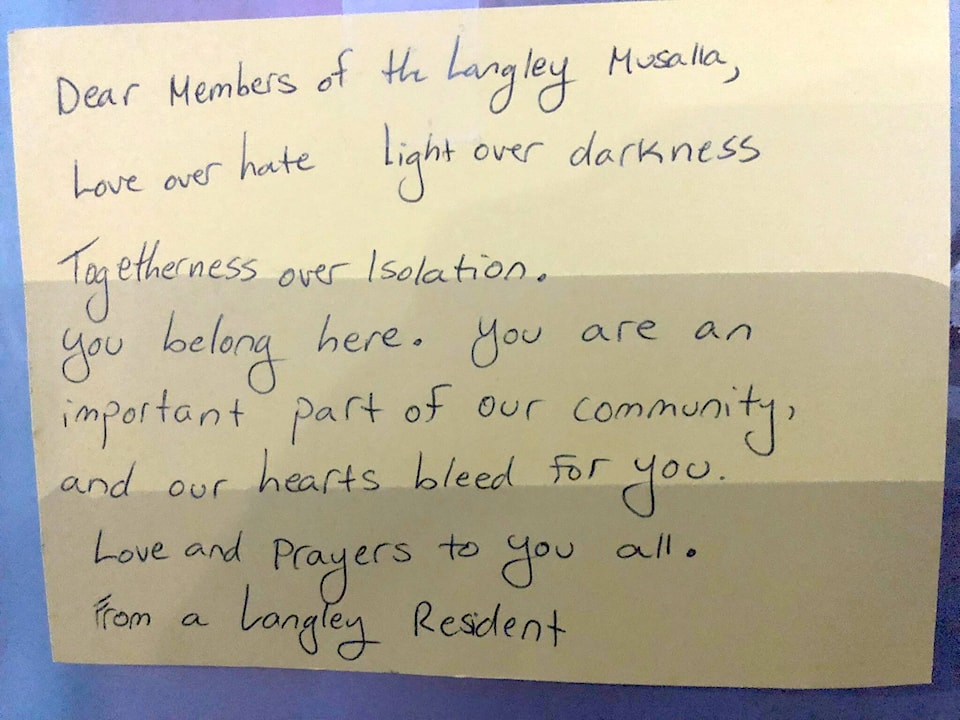 Dear Members of the Langley Musalla,
Love over hate light over darkness
Togetherness over Isolation.
You belong here. You are an
important part of our community,
and our hearts bleed for you.
Love and Prayers to you all.
From a Langley Resident